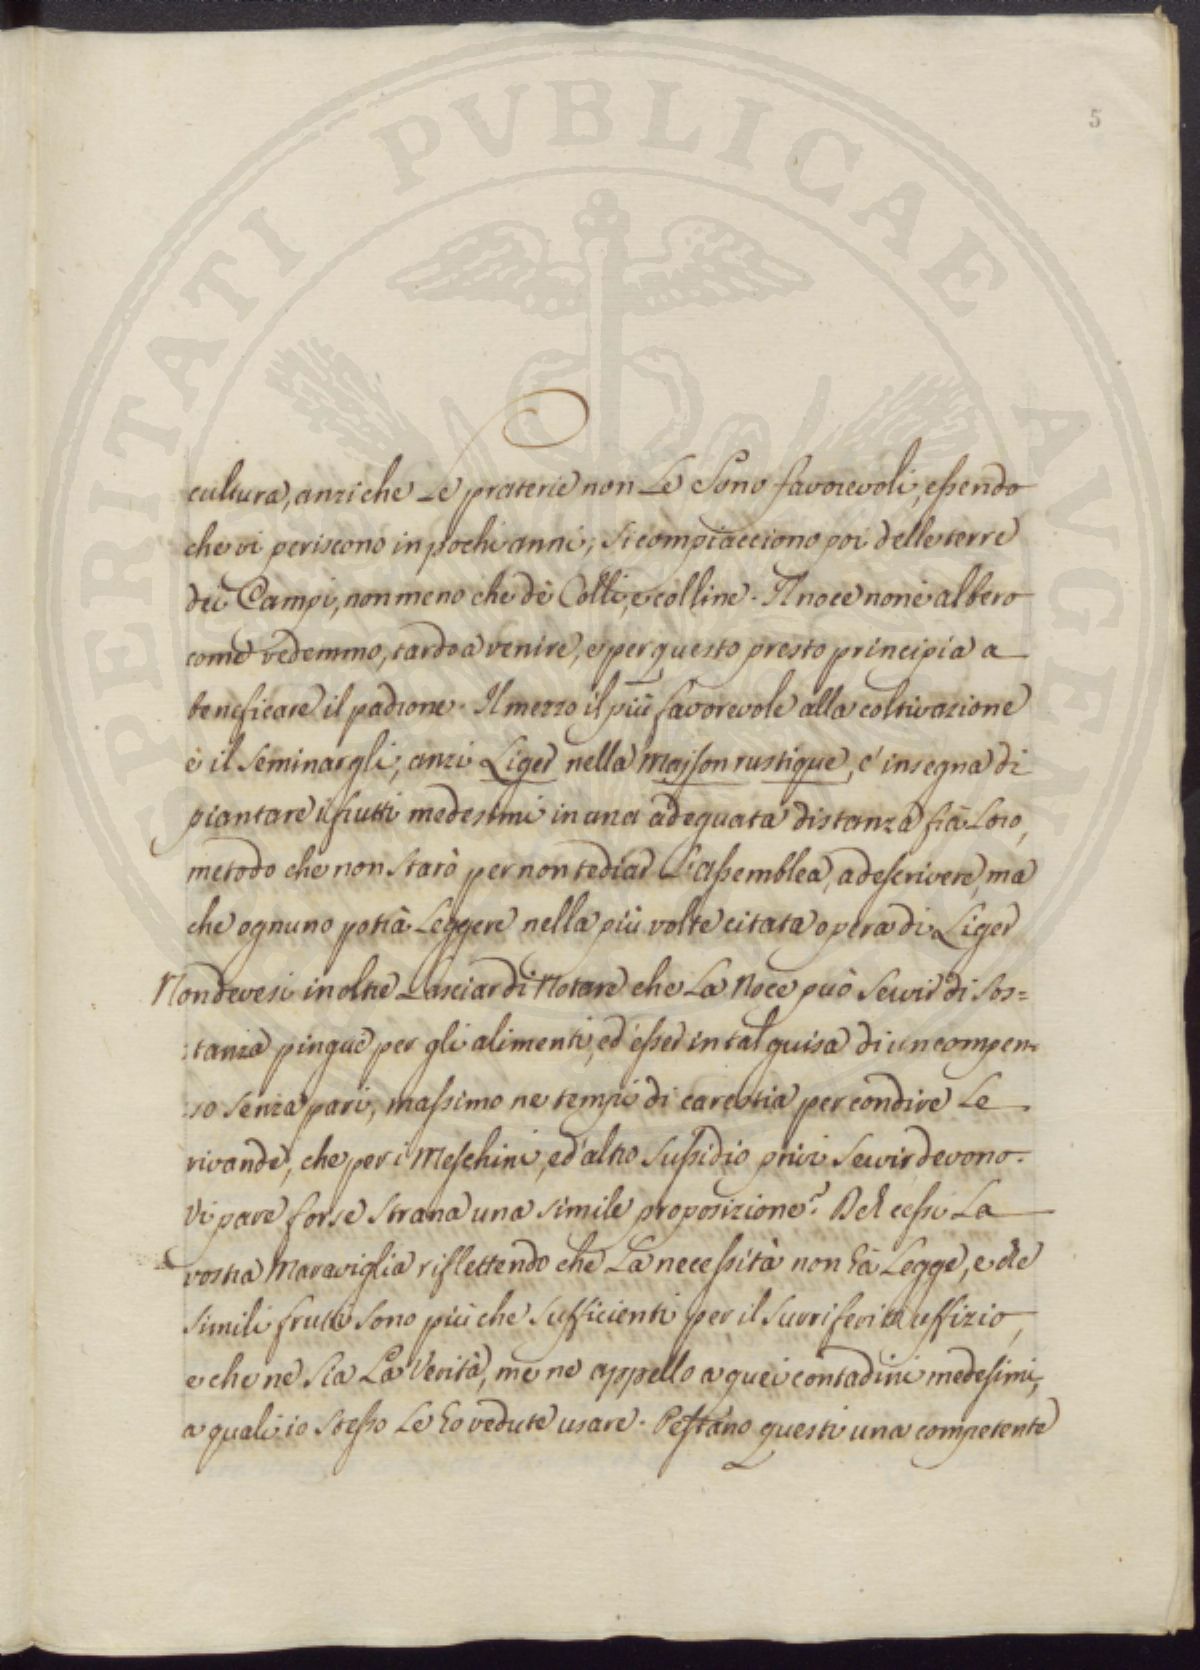 PROSPERITATI PUBLICAE AUGEN
5
cultura, anzi che Le praterie non Le Sono favorevoli, essendo
che vi periscono in pochi anni; si compiacciono poi delle terre
dei Campi, non meno che de Colli, e colline. Il noce non è albero
come vedemmo, tardo a venire, e per questo presto principia a
beneficare il padrone. Il mezzo il più favorevole alla coltivazione
è il Seminargli; anzi Liger nella Majson rustique, c'insegna di
piantare i frutti medesimi in una adequata distanza frà Loro,
metodo che non Starò per non tediar L'assemblea, a descrivere, ma
che ognuno potrà Leggere nella più volte citata opera di Liger
Non devesi inoltre Lasciar di Notare che La Noce può Servir di Sos=
:tanza pingue per gli alimenti, ed esser in tal guisa di un compen=
:so senza pari, massimo ne tempi di carestia per condire Le
vivande, che per i Meschini, ed altro Sussidio privi Servir devono.
Vi pare forse Strana una simile proposizione? Deh cessi La
vostra Maraviglia riflettendo che La necessità non hà Legge, e che
Simili frutti Sono più che Sufficienti per il Surriferito uffizio,
e che ne Sia La Verità, me ne appello a quei contadini medesimi,
a quali io Stesso Le ho vedute usare. Pestano questi una competente